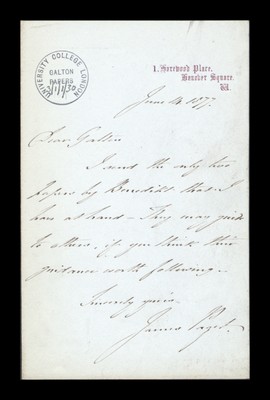 UNIVERSITY COLLEGE LONDON
GALTON
PAPERS
1, Harewood Place,
Hanover Square.
W.
June 14 1877.
Dear Galton
I send the only two
papers by Benedikt that I
have at hand – They may guide
to others, if you think their
guidance worth following.
Sincerely yours
James Paget.